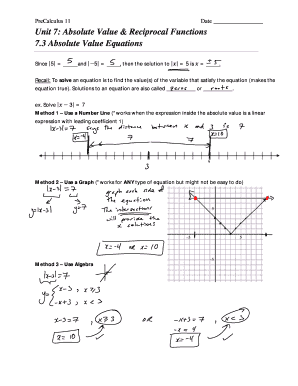 PreCalculus 11 Date
Unit 7: Absolute Value & Reciprocal Functions
7.3 Absolute Value Equations
Since |5| = 5 and |−5| = 5, then the solution to |x| = 5 is x = ±5
Recall: To solve an equation is to find the value(s) of the variable that satisfy the equation (makes the
equation true). Solutions to an equation are also called zeros or roots.
ex. Solve |x − 3| = 7
Method 1 – Use a Number Line (*works when the expression inside the absolute value is a linear
expression with leading coefficient 1)
|x-3|=7 says the distance between x and 3 is 7
x=-4 7 7 x=10
3
Method 2 – Use a Graph (*works for ANY type of equation but might not be easy to do)
|x-3| = 7
y=|x-3| y=7
graph each side of
the equation
The intersections
will provide the
x solutions
x=-4 or x=10
Method 3 – Use Algebra
|x-3|=7
y= { x-3, x≥3
-x+3, x<3
x-3=7, x≥3 or -x+3=7, x<3
x=10 -x=4
x=-4